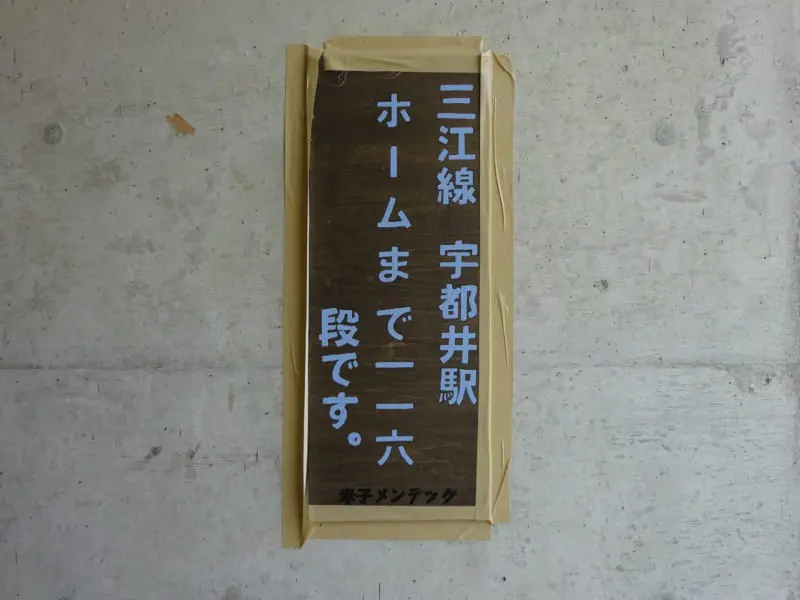 三江線 宇都井駅
ホームまで一一六
段です。
米子メンテック